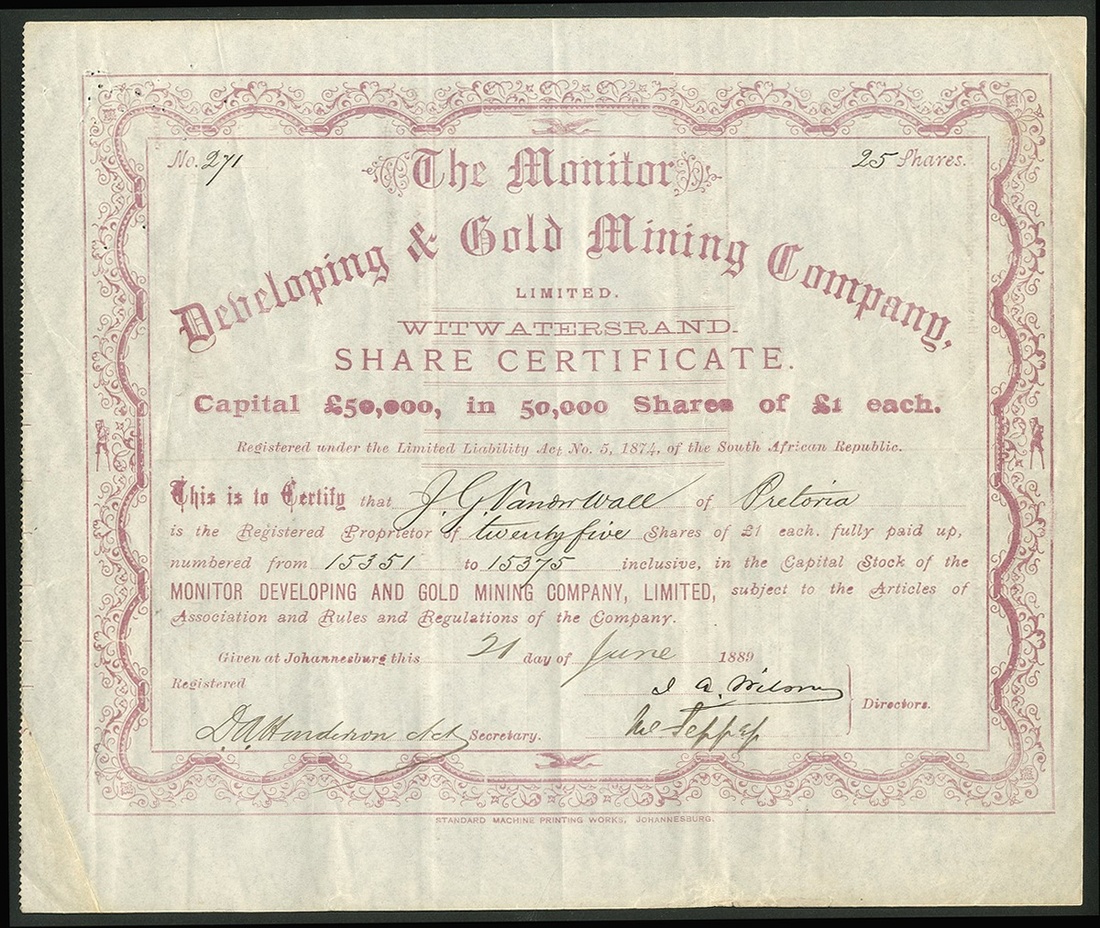 No. 271
25 Shares.
The Monitor
Developing & Gold Mining Company,
LIMITED.
WITWATERSRAND.
SHARE CERTIFICATE.
Capital £50,000, in 50,000 Shares of £1 each.
Registered under the Limited Liability Act No. 5, 1874, of the South African Republic.
This is to Certify that J. G. Vanderwall of Pretoria
is the Registered Proprietor of twenty five Shares of £1 each. fully paid up,
numbered from 15351 to 15375 inclusive, in the Capital Stock of the
MONITOR DEVELOPING AND GOLD MINING COMPANY, LIMITED, subject to the Articles of
Association and Rules and Regulations of the Company.
Given at Johannesburg this 21 day of June 1889
Registered
Wilson
Directors.
D. A. Henderson Act Secretary.
STANDARD MACHINE PRINTING WORKS, JOHANNESBURG.